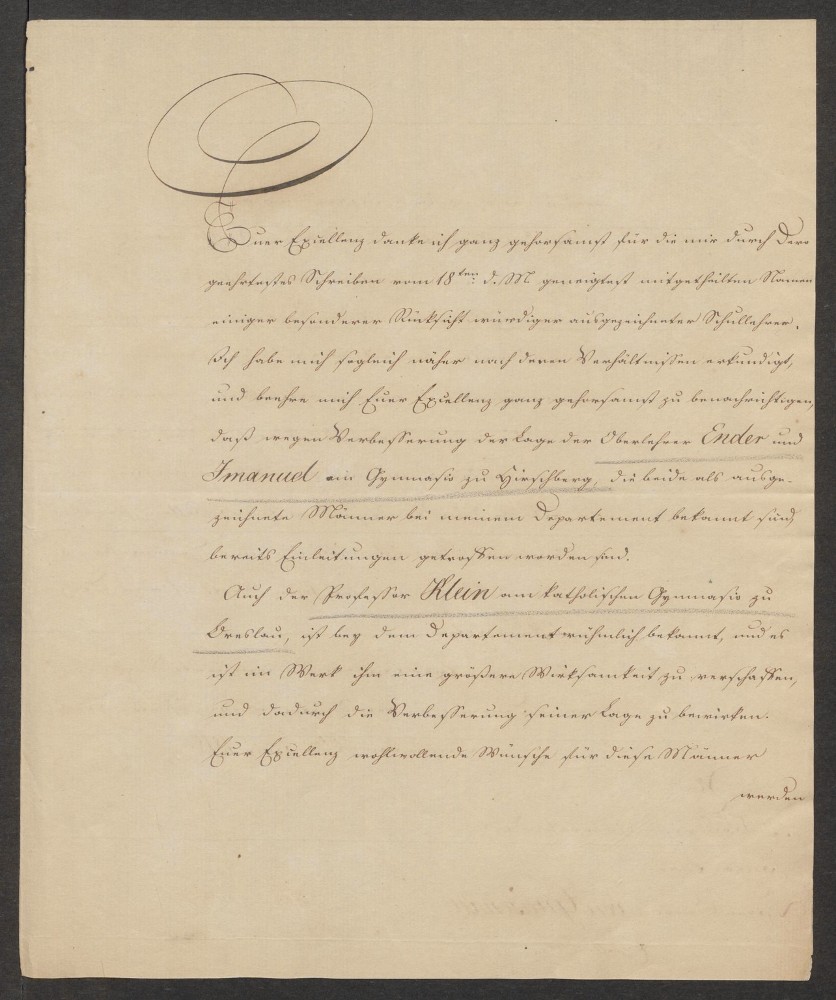 Euer Excellenz danke ich ganz gehorsamst für die mir durch Dero
geehrtestes Schreiben vom 18ten d. M. geneigtest mitgetheilten Namen
einiger besonderer Rücksicht würdiger ausgezeichneter Schullehrer.
Ich habe mich sogleich näher nach deren Verhältnissen erkundigt,
und beehre mich Euer Excellenz ganz gehorsamst zu benachrichtigen,
daß wegen Verbesserung der Lage der Oberlehrer Ender und
Imanuel am Gymnasio zu Hirschberg, die beide als ausge-
zeichnete Männer bei meinem Departement bekannt sind,
bereits Einleitungen getroffen worden sind.
Auch der Professor Klein am katholischen Gymnasio zu
Breslau, ist bey dem Departement rühmlich bekannt, und es
ist im Werk ihm eine größere Wirksamkeit zu verschaffen,
und dadurch die Verbesserung seiner Lage zu bewirken.
Euer Excellenz wohlwollende Wünsche für diese Männer
werden